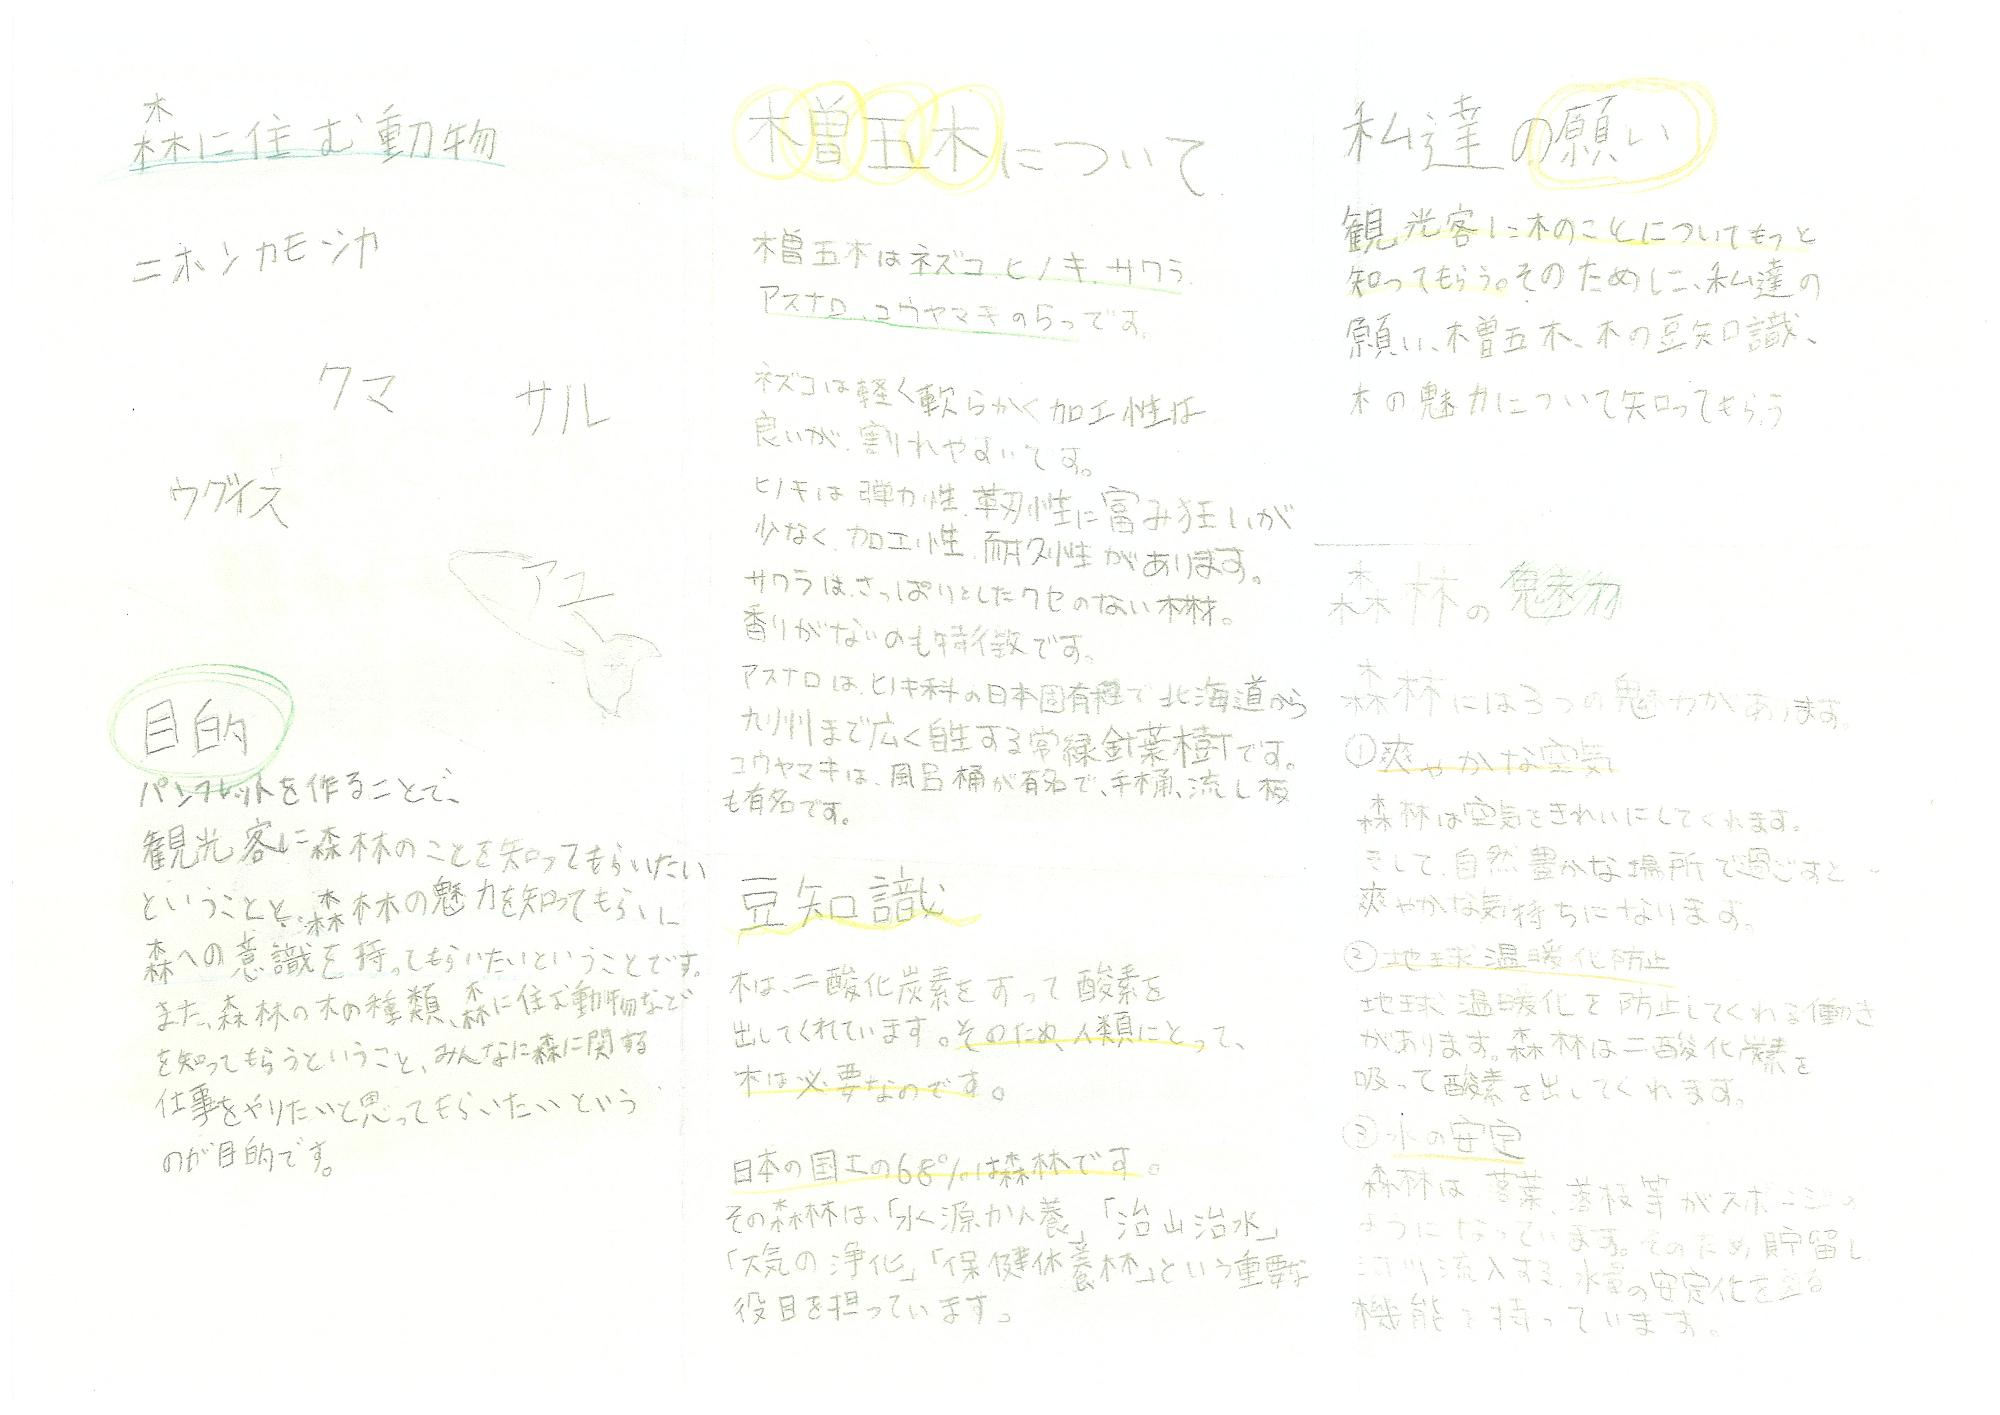 森に住む動物
ニホンカモシカ
クマ
サル
ウグイス
アユ
目的
パンフレットを作ることで、
観光客に森林のことを知ってもらいたい
ということと、森林の魅力を知ってもらい
森への意識を持ってもらいたいということです。
また、森林の木の種類、森に住む動物など
を知ってもらうということ、みんなに森に関する
仕事をやりたいと思ってもらいたいという
のが目的です。
木曽五木について
木曽五木はネズコ、ヒノキ、サワラ、
アスナロ、コウヤマキの5つです。
ネズコは軽く軟らかく加工性は
良いが、割れやすいです。
ヒノキは弾力性、靭性に富み狂いが
少なく、加工性、耐久性があります。
サワラは、さっぱりとしたクセのない木材。
香りがないのも特徴です。
アスナロは、ヒノキ科の日本固有種で北海道から
九州まで広く自生する常緑針葉樹です。
コウヤマキは、風呂桶が有名で、手桶、流し板
も有名です。
豆知識
木は、二酸化炭素をすって酸素を
出してくれています。そのため、人類にとって、
木は必要なのです。
日本の国土の68%は森林です。
その森林は、「水源かん養」「治山治水」
「大気の浄化」「保健休養林」という重要な
役目を担っています。
私達の願い
観光客に木のことについてもっと
知ってもらう。そのために、私達の
願い、木曽五木、木の豆知識、
木の魅力について知ってもらう
森林の魅力
森林には3つの魅力があります。
①爽やかな空気
森林は空気をきれいにしてくれます。
そして、自然豊かな場所で過ごすと
爽やかな気持ちになります。
②地球温暖化防止
地球温暖化を防止してくれる働き
があります。森林は二酸化炭素を
吸って酸素を出してくれます。
③水の安定
森林は落葉、落枝等がスポンジの
ようになっています。そのため、貯留し
河川流入する、水量の安定化を図る
機能を持っています。